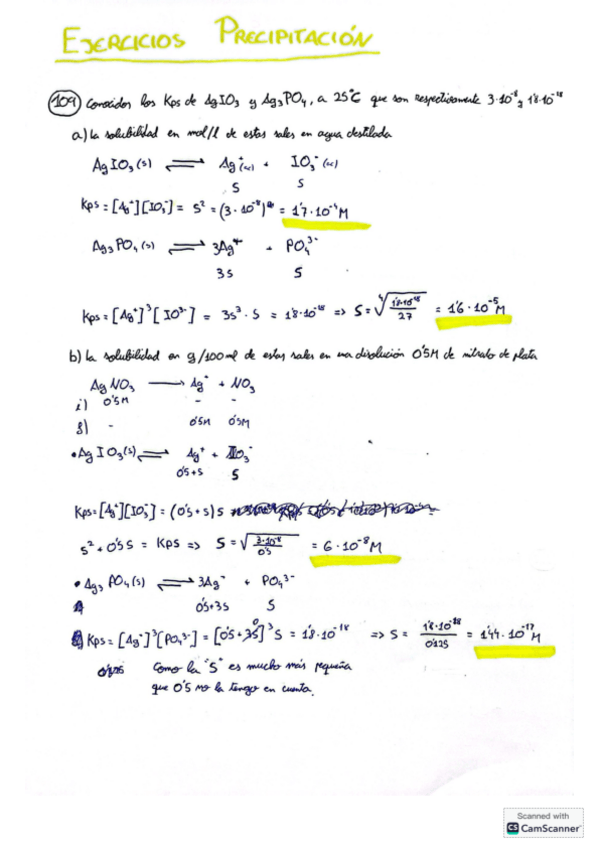 EJERCICIOS PRECIPITACIÓN
109) Conocidos los Kps de AgIO3 y Ag3PO4, a 25ºC que son respectivamente 3·10^-8 y 1'8·10^-18
a) La solubilidad en mol/l de estas sales en agua destilada
AgIO3(s) ⇌ Ag+(ac) + IO3-(ac)
S S
Kps = [Ag+][IO3-] = S² = (3·10^-8) = 1'7·10^-4 M
Ag3PO4(s) ⇌ 3Ag+ + PO4^3-
3S S
Kps = [Ag+]^3 [IO3-] = 3S³·S = 1'8·10^-18 => S = ⁴√(1'8·10^-18/27) = 1'6·10^-5 M
b) La solubilidad en g/100ml de estas sales en una disolución 0'5M de nitrato de plata
AgNO3 → Ag+ + NO3
i) 0'5M - -
f) - 0'5M 0'5M
• AgIO3(s) ⇌ Ag+ + IO3-
0'5+S S
Kps = [Ag+][IO3-] = (0'5+S)S
S² + 0'5S = Kps => S = √(3·10^-8/0'5) = 6·10^-8 M
• Ag3PO4(s) ⇌ 3Ag+ + PO4^3-
0'5+3S S
Kps = [Ag+]^3 [PO4^3-] = [0'5+3S]^3 S = 1'8·10^-18 => S = 1'8·10^-18/0'125 = 1'44·10^-17 M
0'125 Como la "S" es mucho más pequeña
que 0'5 no la tengo en cuenta.
Scanned with
CS CamScanner